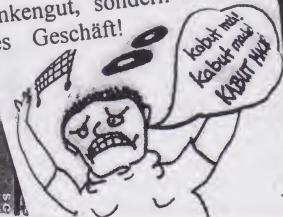 nkengut, sondern
es Geschäft!
kabut mal!
kabut mal!
KABUT MAL!
sc